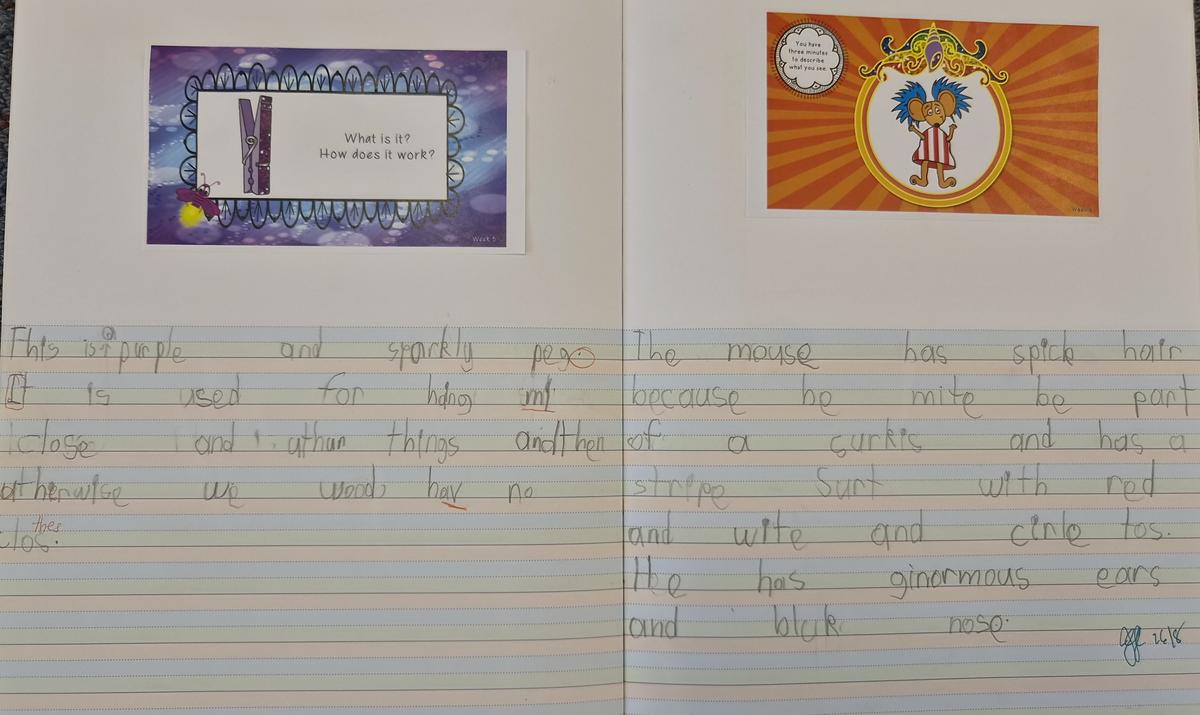 What is it?
How does it work?
Week 5
This is a purple and sparkly peg.
It is used for hdng mi
close and athan things andthen
atherwise we wood hav no
clos.
thes
You have
three minutes
to describe
what you see.
Week 6
The mouse has spick hair
because he mite be part
of a surkis and has a
stripe Surt with red
and wite and cirnle tos.
He has ginormous ears
and blak nose.
26/8